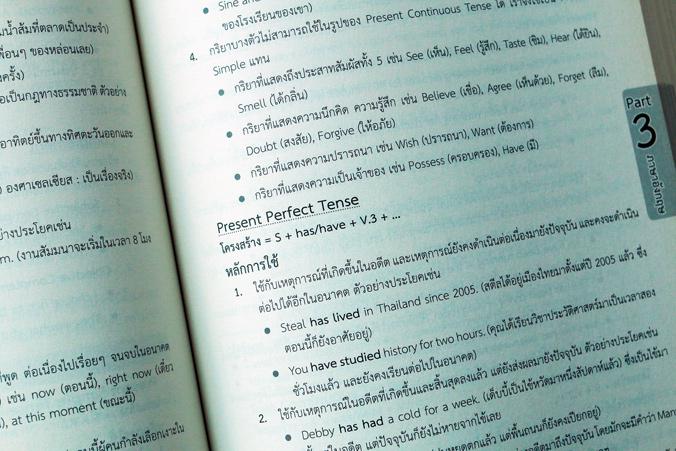 มน้ำส้มที่ตลาดเป็นประจำ)
พื่อนๆ ของหล่อนเลย)
ครั้ง)
อเป็นกฎทางธรรมชาติ ตัวอย่าง
อาทิตย์ขึ้นทางทิศตะวันออกและ
องศาเซลเซียส : เป็นเรื่องจริง)
ย่างประโยคเช่น
m. (งานสัมมนาจะเริ่มในเวลา 8 โมง
ที่พูด ต่อเนื่องไปเรื่อยๆ จนจบในอนาคต
เช่น now (ตอนนี้), right now (เดี๋ยว
), at this moment (ขณะนี้)
ของโรงเรียนของเขา)
4. กริยาบางตัวไม่สามารถใช้ในรูปของ Present Continuous Tense ได้
Simple แทน
• กริยาที่แสดงถึงประสาทสัมผัสทั้ง 5 เช่น See (เห็น), Feel (รู้สึก), Taste (ชิม), Hear (ได้ยิน),
Smell (ได้กลิ่น)
• กริยาที่แสดงความนึกคิด ความรู้สึก เช่น Believe (เชื่อ), Agree (เห็นด้วย), Forget (ลืม),
Doubt (สงสัย), Forgive (ให้อภัย)
• กริยาที่แสดงความปรารถนา เช่น Wish (ปรารถนา), Want (ต้องการ)
• กริยาที่แสดงความเป็นเจ้าของ เช่น Possess (ครอบครอง), Have (มี)
Present Perfect Tense
โครงสร้าง = S + has/have + V.3 + ...
หลักการใช้
1. ใช้กับเหตุการณ์ที่เกิดขึ้นในอดีต และเหตุการณ์ยังคงดำเนินต่อเนื่องมายังปัจจุบัน และคงจะดำเนิน
ต่อไปได้อีกในอนาคต ตัวอย่างประโยคเช่น
• Steal has lived in Thailand since 2005. (สตีลได้อยู่เมืองไทยมาตั้งแต่ปี 2005 แล้ว ซึ่ง
ตอนนี้ก็ยังอาศัยอยู่)
• You have studied history for two hours. (คุณได้เรียนวิชาประวัติศาสตร์มาเป็นเวลาสอง
ชั่วโมงแล้ว และยังคงเรียนต่อไปในอนาคต)
2. ใช้กับเหตุการณ์ในอดีตที่เกิดขึ้นและสิ้นสุดลงแล้ว แต่ยังส่งผลมายังปัจจุบัน ตัวอย่างประโยคเช่น
• Debby has had a cold for a week. (เด็บบี้เป็นไข้หวัดมาหนึ่งสัปดาห์แล้ว) ซึ่งเป็นไข้มา
ในอดีต แต่ปัจจุบันก็ยังไม่หายจากไข้เลย
Part
3
ภาษาอังกฤษ